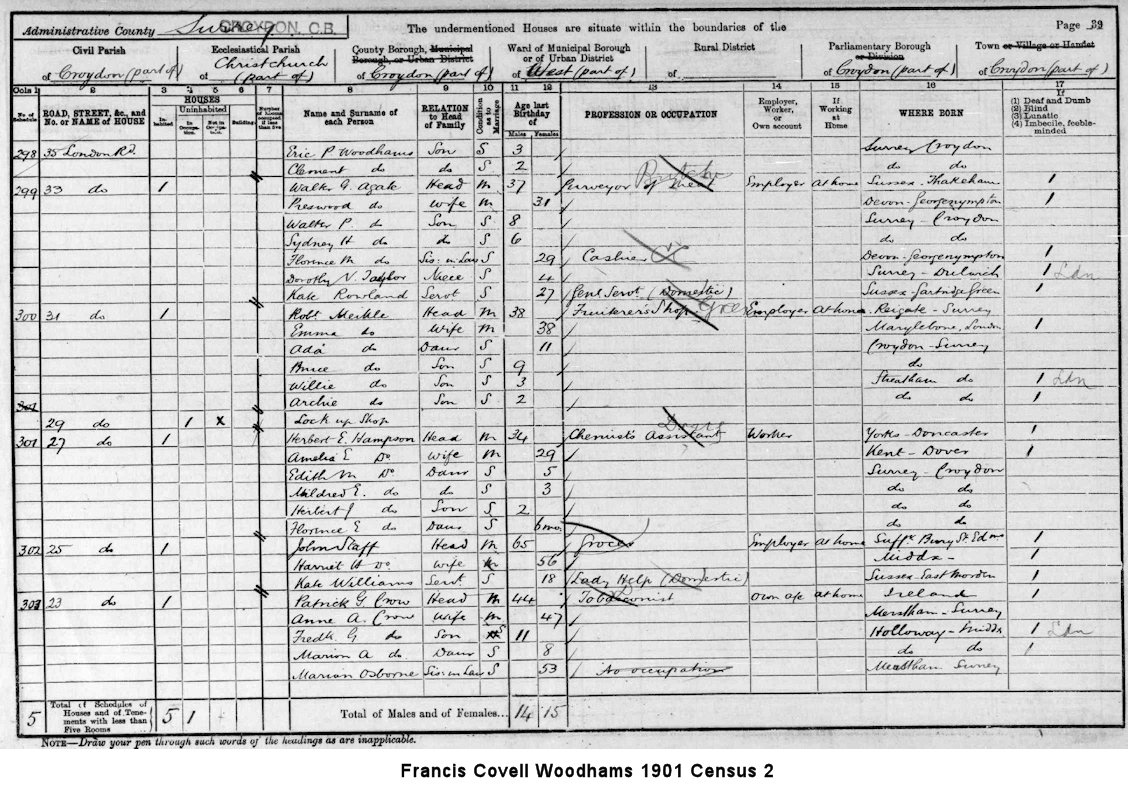 Administrative County Surrey CROYDON, C.B. The undermentioned Houses are situate within the boundaries of the Page 39
Civil Parish Ecclesiastical Parish County Borough, Municipal Borough, or Urban District Ward of Municipal Borough or of Urban District Rural District Parliamentary Borough or Division Town or Village or Hamlet
of Croydon (part of) of Christchurch (part of) of Croydon (part of) of West (part of) of of Croydon (part of) of Croydon (part of)
Cols 1 2 3 4 5 6 7 8 9 10 11 12 13 14 15 16 17
No. of Schedule ROAD, STREET, &c., and No. or NAME of HOUSE HOUSES Inhabited Uninhabited In Occupation Not in Occupation Building Number of Rooms occupied if less than five Name and Surname of each Person RELATION to Head of Family Condition as to Marriage Age last Birthday of Males Females PROFESSION OR OCCUPATION Employer, Worker, or Own account If Working at Home WHERE BORN If (1) Deaf and Dumb (2) Blind (3) Lunatic (4) Imbecile, feeble-minded
298 35 London Rd. Eric P Woodhams Son S 3 Surrey Croydon
Clement do do S 2 do do
299 33 do 1 Walter G. Agate Head M 37 Purveyor of Meat Butcher Employer At home Sussex - Thakeham 1
Preswood do Wife M 31 Devon - Georgenympton 1
Walter P. do Son S 8 Surrey - Croydon
Sydney H do do S 6 do do
Florence M do Sis: in Law S 29 Cashier Devon - Georgenympton 1
Dorothy N. Taylor Niece S 4 Surrey - Dulwich 1 Ldn
Kate Rowland Servt S 27 Genl Servt (Domestic) Sussex - Partridge Green 1
300 31 do 1 Robt Meikle Head M 38 Fruiterer's Shop Employer At home Reigate - Surrey
Emma do Wife M 38 Marylebone, London 1
Ada do Daur S 11 Croydon - Surrey
Bruce do Son S 9 do
Willie do Son S 3 Streatham do 1 Ldn
Archie do Son S 2 do do 1
301
29 do 1 x Lock up Shop
301 27 do 1 Herbert E. Hampson Head M 34 Chemist's Assistant Worker Yorks - Doncaster 1
Amelia E Do Wife M 29 Kent - Dover 1
Edith M Do Daur S 5 Surrey - Croydon
Mildred E. do do S 3 do do
Herbert J do Son S 2 do do
Florence E do Daur S 6 mo. do do
302 25 do 1 John Staff Head M 65 Grocer Employer At home Suffk Bury St Edms 1
Harriet H Do Wife M 56 Middx - 1
Kate Williams Servt. S 18 Lady Help (Domestic) Sussex East Mordon 1
303 23 do 1 Patrick G. Crow Head M 44 Tobacconist Own a/c at home Ireland 1
Anne A. Crow Wife M 47 Merstham - Surrey
Fredk. G do Son S 11 Holloway - Middx 1 Ldn
Marion A do Daur S 8 do do 1
Marian Osborne Sis: in Law S 53 No occupation Merstham Surrey
5 Total of Schedules of Houses and of Tenements with less than Five Rooms 5 1 Total of Males and of Females... 14 15
NOTE—Draw your pen through such words of the headings as are inapplicable.
Francis Covell Woodhams 1901 Census 2